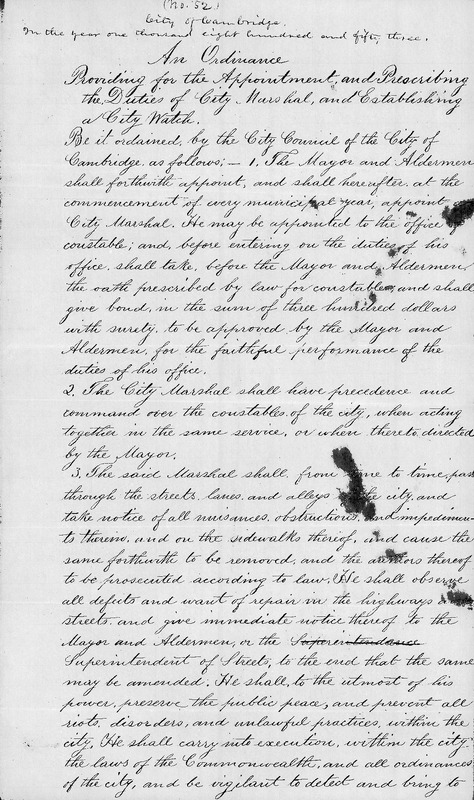 (No. 52)
City of Cambridge.
In the year one thousand eight hundred and fifty three.
An Ordinance
Providing for the Appointment, and Prescribing
the Duties of City Marshal, and Establishing
a City Watch.
Be it ordained, by the City Council of the City of
Cambridge, as follows; — 1. The Mayor and Aldermen
shall forthwith appoint, and shall hereafter, at the
commencement of every municipal year, appoint
City Marshal. He may be appointed to the office
constable; and, before entering on the duties of his
office, shall take, before the Mayor and Aldermen,
the oath prescribed by law for constables, and shall
give bond, in the sum of three hundred dollars
with surety, to be approved by the Mayor and
Aldermen, for the faithful performance of the
duties of his office.
2. The City Marshal shall have precedence and
command over the constables of the city, when acting
together in the same service, or when thereto directed
by the Mayor.
3. The said Marshal shall, from time to time, pass
through the streets, lanes, and alleys the city, and
take notice of all nuisances, obstructions, and impedimen-
ts thereno, and on the sidewalks thereof, and cause the
same forthwith to be removed, and the authors thereof
to be prosecuted according to law. He shall observe
all defects and want of repair in the highways
streets, and give immediate notice thereof to the
Mayor and Aldermen, or the Superintendance
Superintendent of Streets, to the end that the same
may be amended. He shall, to the utmost of his
power, preserve the public peace, and prevent all
riots, disorders, and unlawful practices, within the
city. He shall carry into execution, within the city
the laws of the Commonwealth, and all ordinances
of the city, and be vigilant to detect and bring to